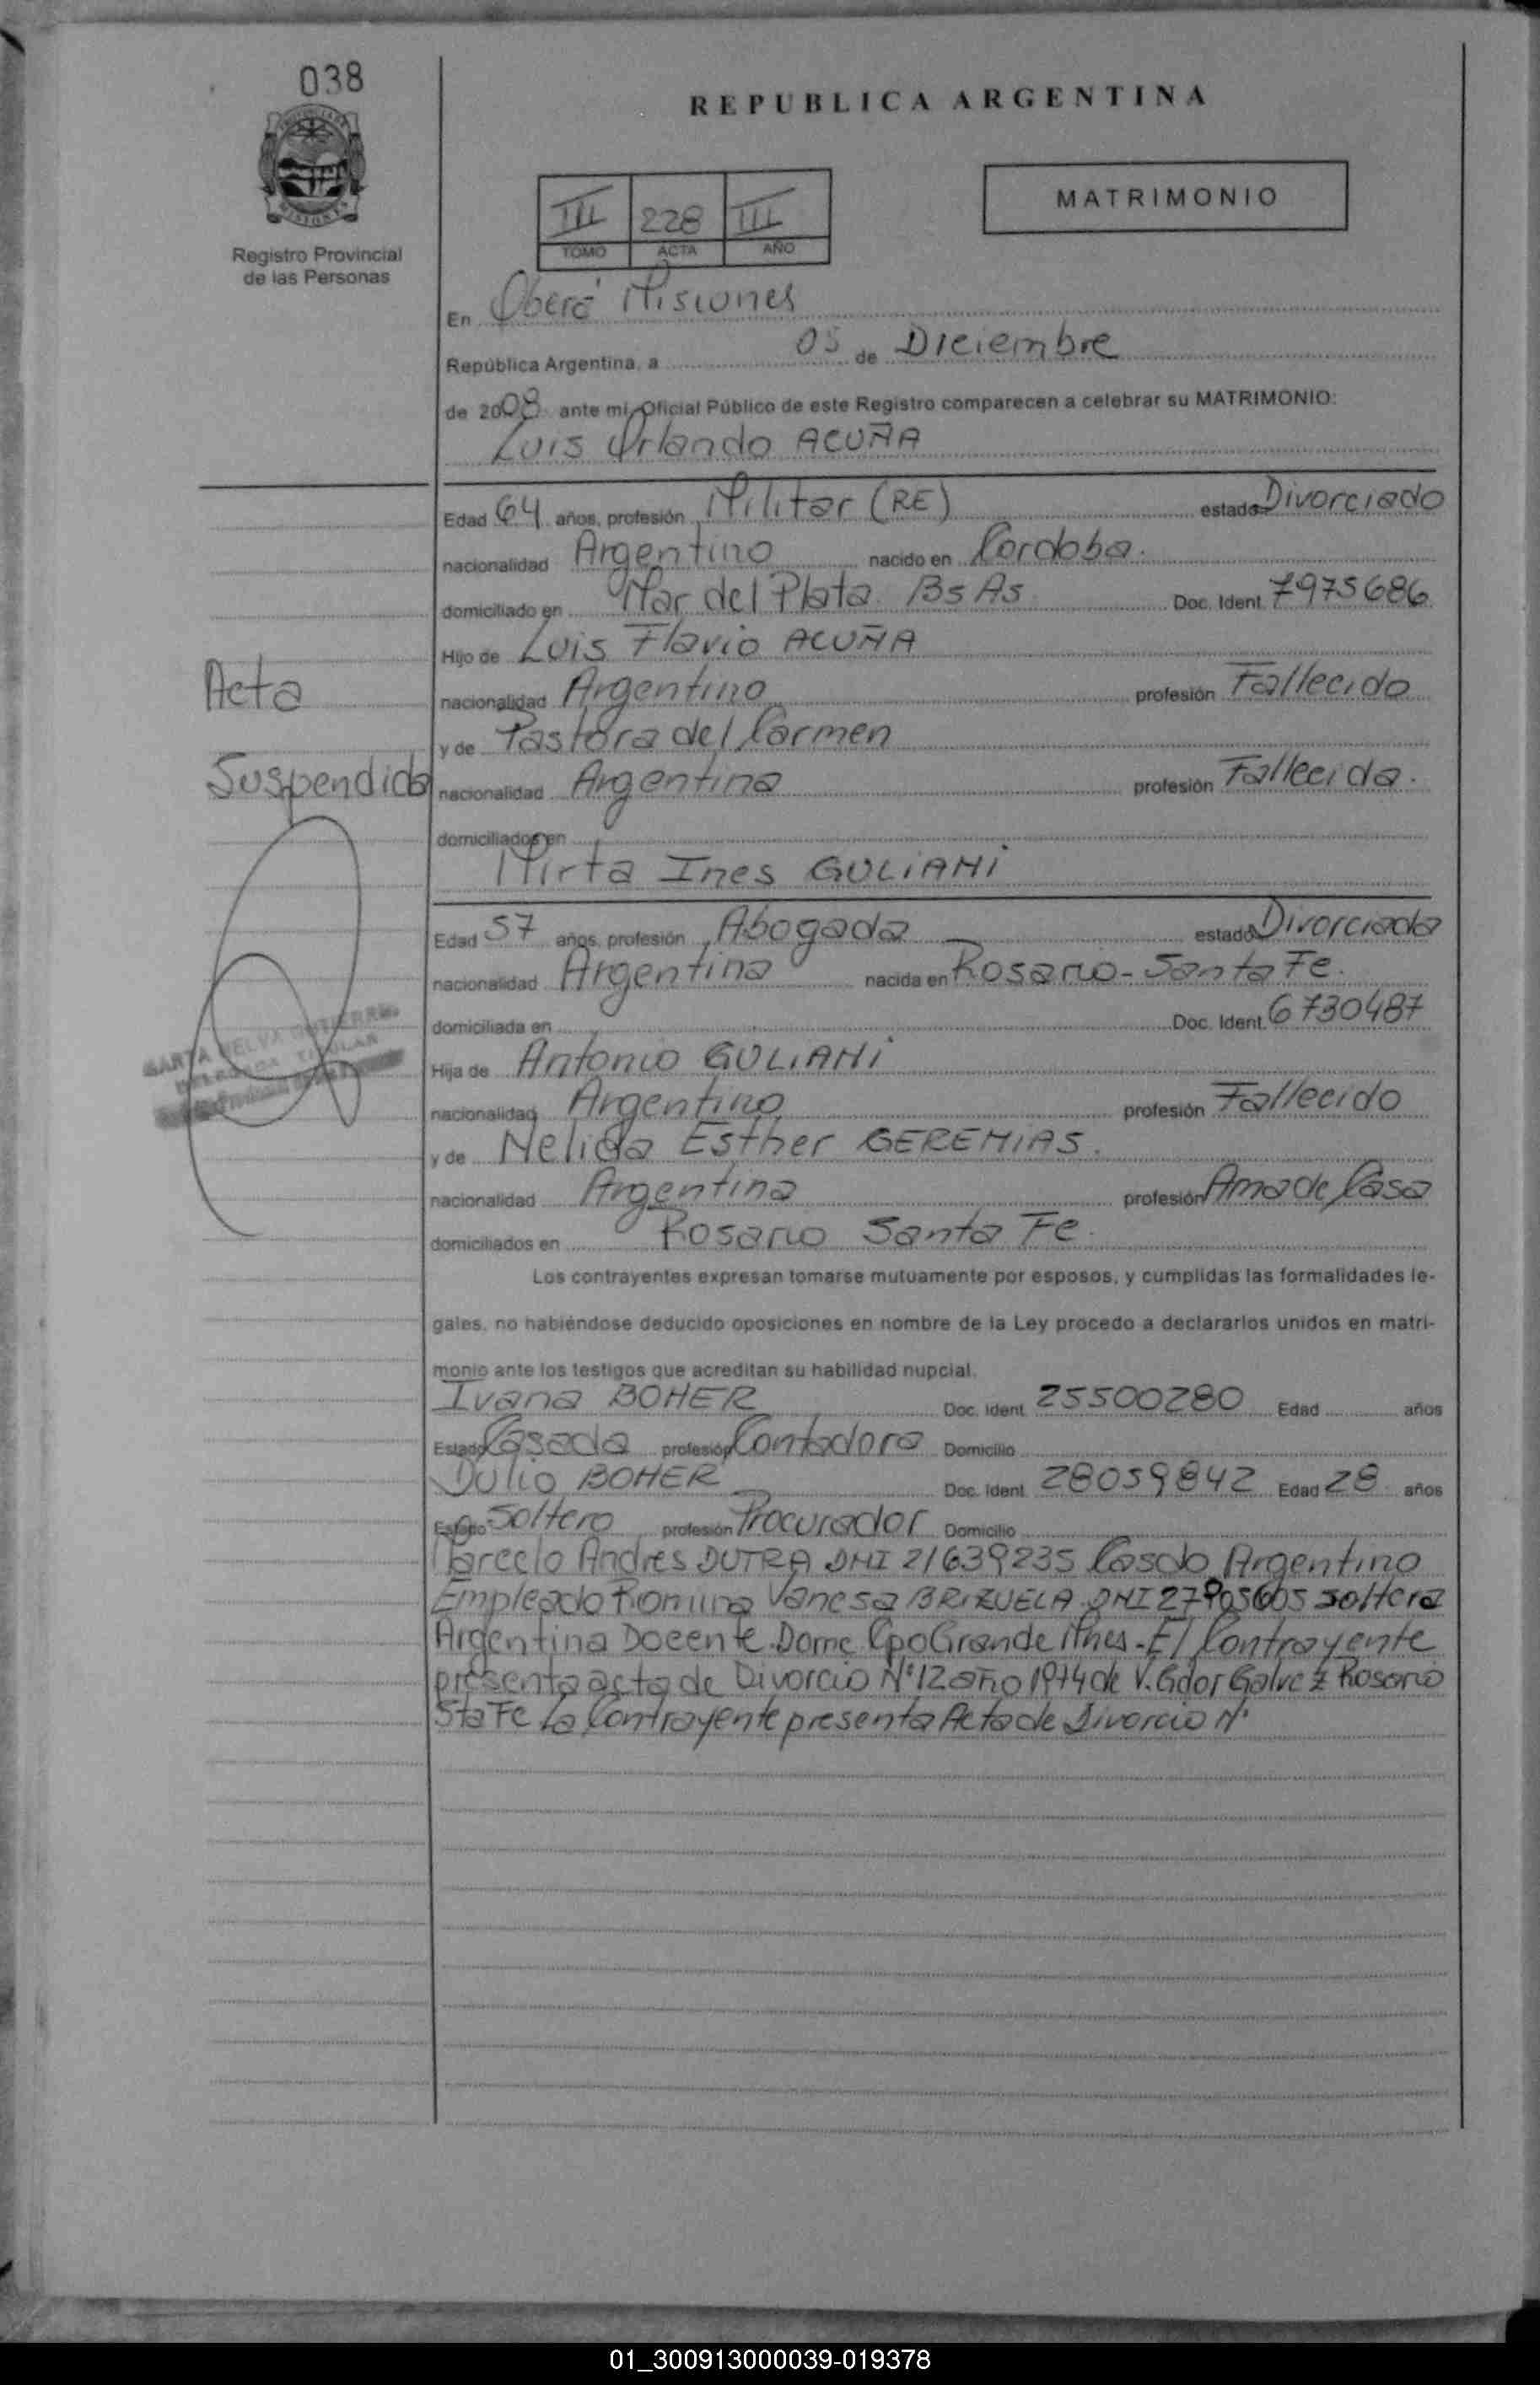 038
REPUBLICA ARGENTINA
MISIONES
Registro Provincial
de las Personas
III 228 III
TOMO ACTA AÑO
MATRIMONIO
En Oberá Misiones
República Argentina, a 05 de Diciembre
de 2008 ante mi, Oficial Público de este Registro comparecen a celebrar su MATRIMONIO:
Luis Orlando ACUÑA
Edad 64 años, profesión Militar (RE) estado Divorciado
nacionalidad Argentino nacido en Cordoba.
domiciliado en Mar del Plata Bs As Doc. Ident. 7975686
Hijo de Luis Flavio ACUÑA
Acta
nacionalidad Argentino profesión Fallecido
y de Pastora del Carmen
Suspendida
nacionalidad Argentina profesión Fallecida.
domiciliados en
Mirta Ines GULIANI
Edad 57 años, profesión Abogada estado Divorciada
nacionalidad Argentina nacida en Rosario - Santa Fe.
domiciliada en Doc. Ident. 6730487
SARTA NELVA GUTIERREZ
TITULAR
Hija de Antonio GULIANI
nacionalidad Argentino profesión Fallecido
y de Nelida Esther GEREMIAS.
nacionalidad Argentina profesión Ama de Casa
domiciliados en Rosario Santa Fe.
Los contrayentes expresan tomarse mutuamente por esposos, y cumplidas las formalidades le-
gales, no habiéndose deducido oposiciones en nombre de la Ley procedo a declararlos unidos en matri-
monio ante los testigos que acreditan su habilidad nupcial.
Ivana BOHER Doc. Ident. 25500280 Edad años
Estado Casada profesión Contadora Domicilio
Dulio BOHER Doc. Ident. 28059842 Edad 28 años
Estado Soltero profesión Procurador Domicilio
Marcelo Andres DUTRA DNI 21639235 Casado Argentino
Empleado Romina Vanesa BRIZUELA DNI 27905605 soltera
Argentina Docente. Domc. Cpo Grande Mnes - El Contrayente
presenta acta de Divorcio N° 12 año 1974 de V. Gdor Galvez Rosario
Sta Fe La Contrayente presenta Acta de Divorcio N°
01_300913000039-019378